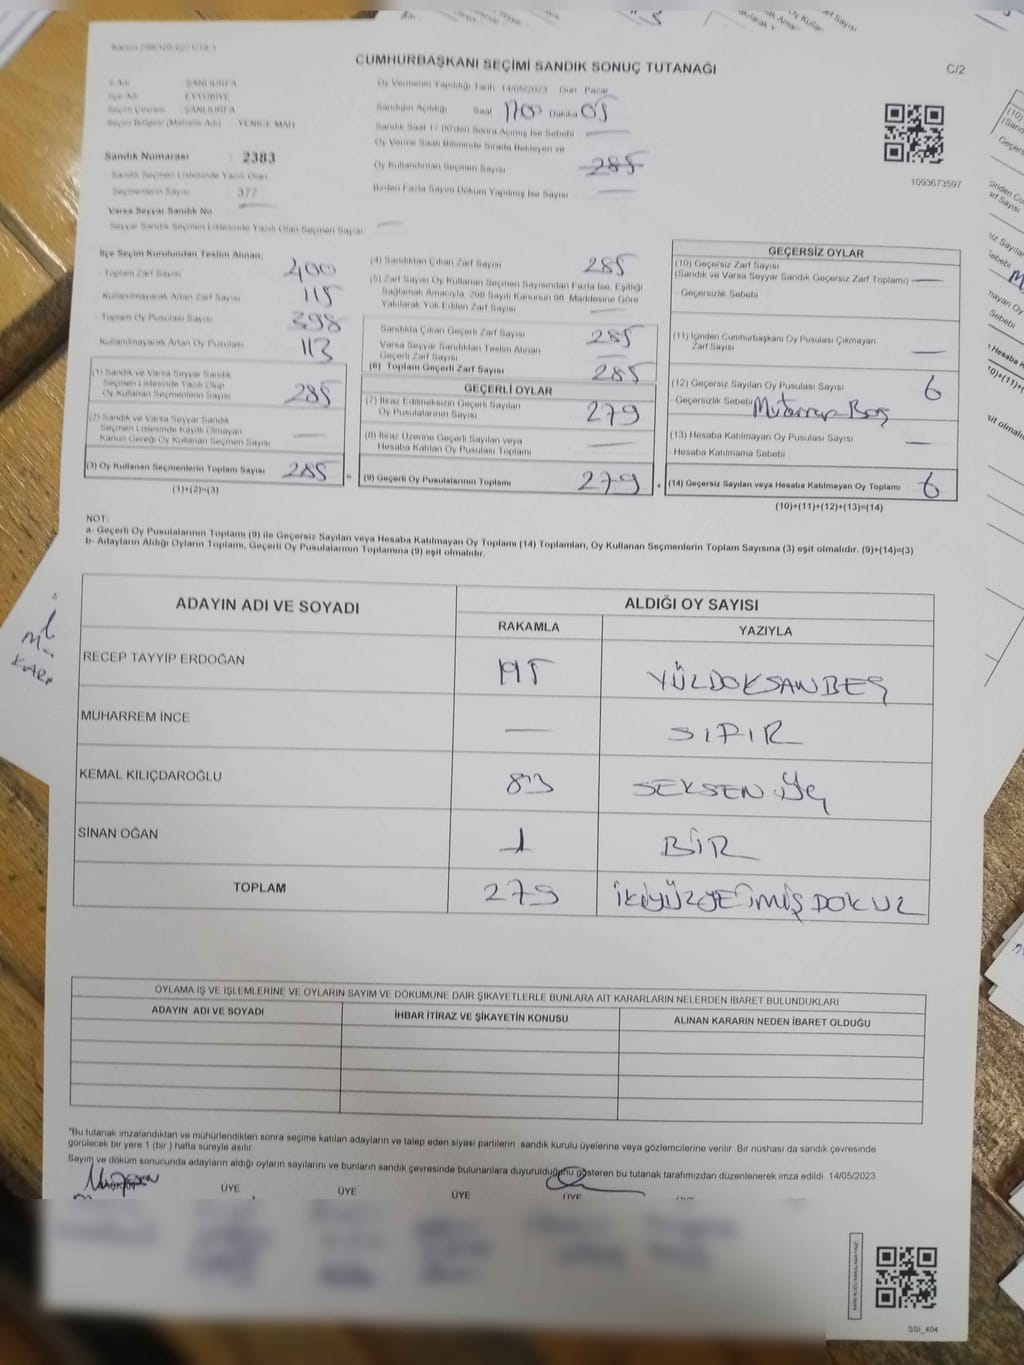 CUMHURBAŞKANI SEÇİMİ SANDIK SONUÇ TUTANAĞI
C/2
İl Adı ŞANLIURFA
İlçe Adı EYYÜBİYE
Seçim Çevresi : ŞANLIURFA
Seçim Bölgesi (Mahalle Adı) YENİCE MAH
Sandık Numarası : 2383
Sandık Seçmen Listesinde Yazılı Olan
Seçmenlerin Sayısı : 377
Varsa Seyyar Sandık No :
Seyyar Sandık Seçmen Listesinde Yazılı Olan Seçmen Sayısı
Oy Vermenin Yapıldığı Tarih 14/05/2023 Gün Pazar
Sandığın Açıldığı Saat 1700 Dakika 05
Sandık Saat 17:00'den Sonra Açılmış İse Sebebi
Oy Verme Saati Bitiminde Sırada Bekleyen ve
Oy Kullandırılan Seçmen Sayısı 285
Birden Fazla Sayım Döküm Yapılmış İse Sayısı
1093673597
İlçe Seçim Kurulundan Teslim Alınan;
Toplam Zarf Sayısı 400
Kullanılmayarak Artan Zarf Sayısı 115
Toplam Oy Pusulası Sayısı 398
Kullanılmayarak Artan Oy Pusulası 113
(1) Sandık ve Varsa Seyyar Sandık
Seçmen Listesinde Yazılı Olup
Oy Kullanan Seçmenlerin Sayısı 285
(2) Sandık ve Varsa Seyyar Sandık
Seçmen Listesinde Kayıtlı Olmayan
Kanun Gereği Oy Kullanan Seçmen Sayısı
(3) Oy Kullanan Seçmenlerin Toplam Sayısı 285
(1)+(2)=(3)
(4) Sandıktan Çıkan Zarf Sayısı 285
(5) Zarf Sayısı Oy Kullanan Seçmen Sayısından Fazla İse, Eşitliği
Sağlamak Amacıyla, 298 Sayılı Kanunun 98. Maddesine Göre
Yakılarak Yok Edilen Zarf Sayısı
Sandıkta Çıkan Geçerli Zarf Sayısı 285
Varsa Seyyar Sandıktan Teslim Alınan
Geçerli Zarf Sayısı
(6) Toplam Geçerli Zarf Sayısı 285
GEÇERLİ OYLAR
(7) İtiraz Edilmeksizin Geçerli Sayılan
Oy Pusulasının Sayısı 279
(8) İtiraz Üzerine Geçerli Sayılan veya
Hesaba Katılan Oy Pusulası Toplamı
= (9) Geçerli Oy Pusulalarının Toplamı 279
GEÇERSİZ OYLAR
(10) Geçersiz Zarf Sayısı
(Sandık ve Varsa Seyyar Sandık Geçersiz Zarf Toplamı)
Geçersizlik Sebebi
(11) İçinden Cumhurbaşkanı Oy Pusulası Çıkmayan
Zarf Sayısı
(12) Geçersiz Sayılan Oy Pusulası Sayısı 6
Geçersizlik Sebebi
(13) Hesaba Katılmayan Oy Pusulası Sayısı
Hesaba Katılmama Sebebi
+ (14) Geçersiz Sayılan veya Hesaba Katılmayan Oy Toplamı 6
(10)+(11)+(12)+(13)=(14)
NOT:
a- Geçerli Oy Pusulalarının Toplamı (9) ile Geçersiz Sayılan veya Hesaba Katılmayan Oy Toplamı (14) Toplamları, Oy Kullanan Seçmenlerin Toplam Sayısına (3) eşit olmalıdır. (9)+(14)=(3)
b- Adayların Aldığı Oyların Toplamı, Geçerli Oy Pusulalarının Toplamına (9) eşit olmalıdır.
ADAYIN ADI VE SOYADI ALDIĞI OY SAYISI
RAKAMLA YAZIYLA
RECEP TAYYİP ERDOĞAN 195 YÜZDOKSANBEŞ
MUHARREM İNCE — SIFIR
KEMAL KILIÇDAROĞLU 83 SEKSEN ÜÇ
SİNAN OĞAN 1 BİR
TOPLAM 279 İKİYÜZYETMİŞDOKUZ
OYLAMA İŞ VE İŞLEMLERİNE VE OYLARIN SAYIM VE DÖKÜMÜNE DAİR ŞİKAYETLERLE BUNLARA AİT KARARLARIN NELERDEN İBARET BULUNDUKLARI
ADAYIN ADI VE SOYADI İHBAR İTİRAZ VE ŞİKAYETİN KONUSU ALINAN KARARIN NEDEN İBARET OLDUĞU
*Bu tutanak imzalandıktan ve mühürlendikten sonra seçime katılan adayların ve talep eden siyasi partilerin sandık kurulu üyelerine veya gözlemcilerine verilir. Bir nüshası da sandık çevresinde
görülecek bir yere 1 (bir ) hafta süreyle asılır.
Sayım ve döküm sonucunda adayların aldığı oyların sayılarını ve bunların sandık çevresinde bulunanlara duyurulduğunu gösteren bu tutanak tarafımızdan düzenlenerek imza edildi. 14/05/2023
BAŞKAN ÜYE ÜYE ÜYE ÜYE
SSI_404